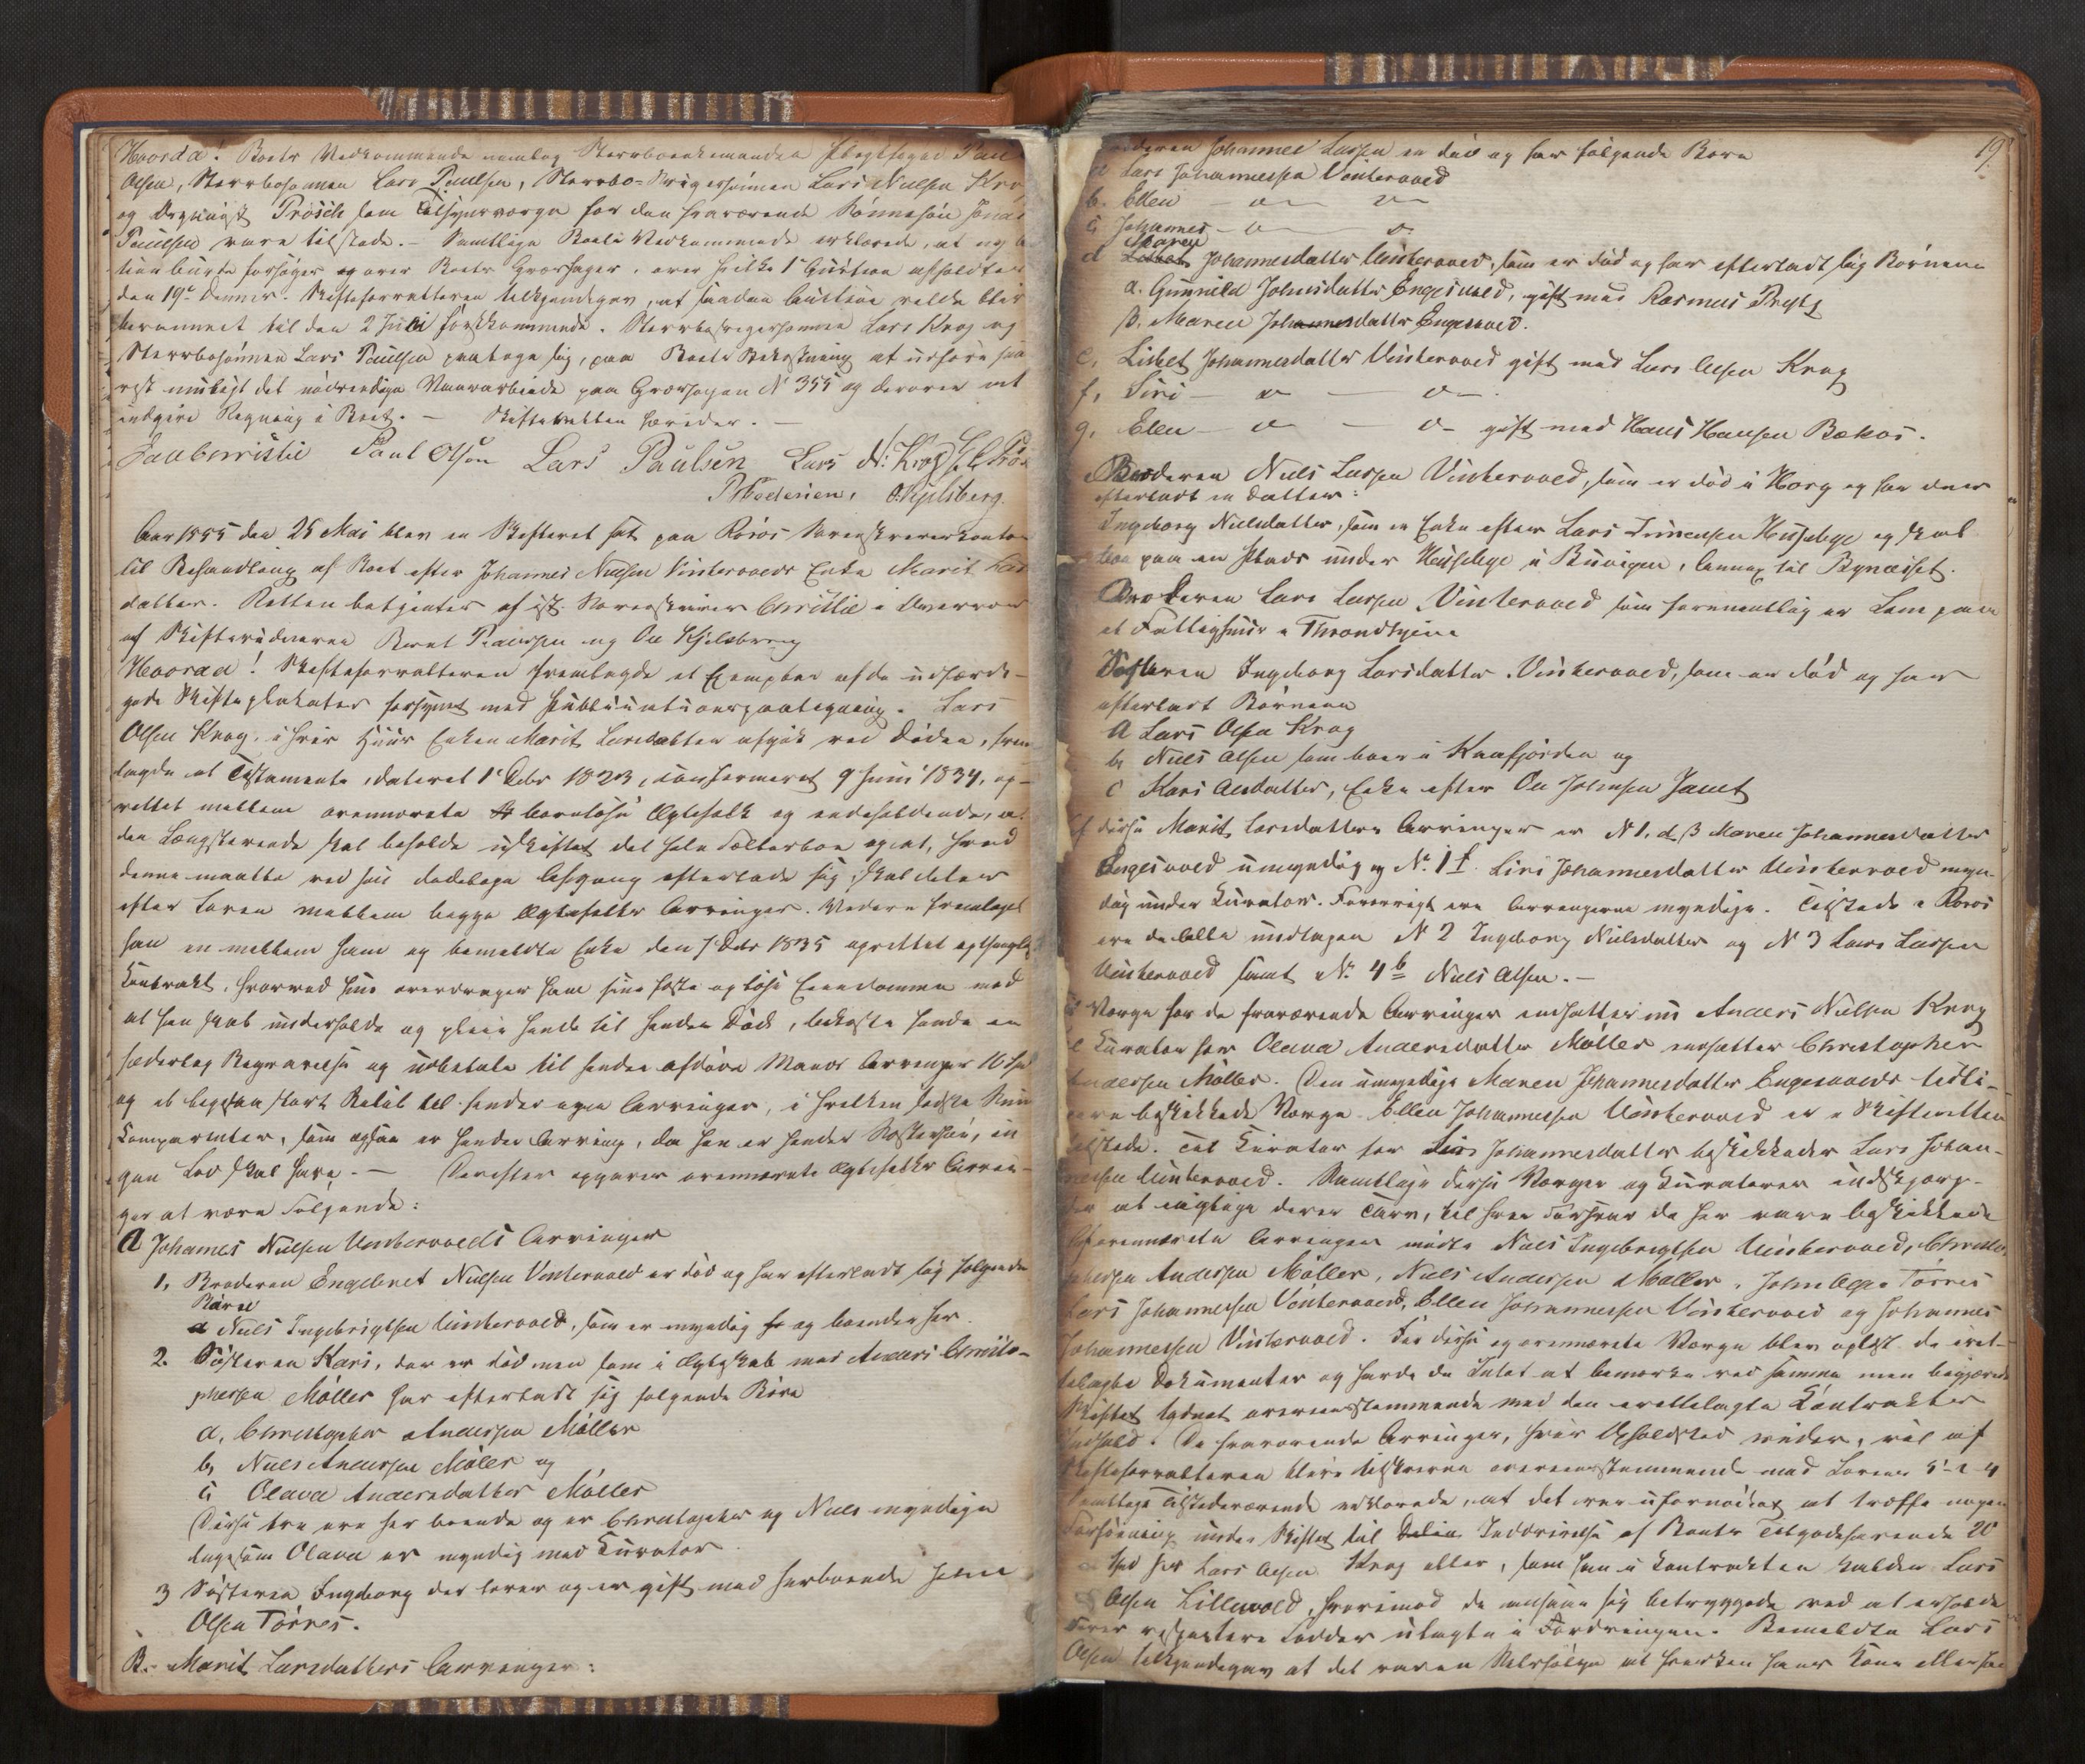 Hvorda! Boets Vedkommende nemlig Stervboenkemanden Paul
Olsen, Stervbosønnen Lars Paulsen, Stervbo-Svigersønnen Lars Nielsen Krog
og Prösch som Tilsynsværge for den fraværende Sønnesøn Jonas
Paulsen vare tilstede. – Samtlige Boets Vedkommende erklærede, at ny Auc-
tion burde forsøges over Boets Græshager, over hvilke 1ste Auction afholdtes
den 19de dennes. Skifteforvalteren tilkjendegav, at saadan Auction vilde blive
berammet til den 2 Juli førstkommende. Stervbosvigersønnen Lars Krog og
Stervbosønnen Lars Paulsen paatoge sig, paa Boets Bekostning at udføre saa
vidt muligt det nødvendige Vaararbeide paa Græshagen No 355 og derover at
indgive Regning i Boet. – Skifteretten hæves. –
Paul Olsen Lars Paulsen Lars N: Krog
P. Pedersen, O. Kjelsberg.
Aar 1855 den 25 Mai blev en Skifteret sat paa Røros Sorenskriverkontor
til Behandling af Boet efter Johannes Nielsen Vintervolds Enke Marit Lars-
datter. Retten betjentes af cst. Sorenskriver Christie i Overvær
af Skiftevidnerne Bernt Paulsen og Ole Kjelsberg
Hvorda! Skifteforvalteren fremlagde et Exemplar af de udfærdi-
gede Skifteplakater forsynet med Publikationspaategning. Lars
Olsen Krog, i hvis Huus Enken Marit Larsdatter afgik ved Døden, frem-
lagde et Testamente, dateret 1 Debr 1823, confirmeret 9 Juni 1834, op-
rettet mellem ovennævnte barnløse Ægtefolk og indeholdende, at
den Længstlevende skal beholde uskiftet det hele Fællesboe og at, hvad
denne maatte ved sin dødelige Afgang efterlade sig, skal deles
efter Loven mellem begge Ægtefolks Arvinger. Videre fremlagde
han en mellem ham og bemeldte Enke den 7 Debr 1835 oprettet
Contrakt, hvorved hun overdrager ham sine faste og løse Eiendomme mod
at han skal underholde og pleie hende til hendes Død, bekoste hende en
hæderlig Begravelse og udbetale til hendes afdøde Mands Arvinger 10 Spd
og et ligesaa stort Beløb til hendes egne Arvinger, i hvilken sidste Sum
Comparenten, som ogsaa er hendes Arving, da han er hendes Søstersøn, in-
gen Lod skal have. – Derefter opgaves ovennævnte Ægtefolks Arvin-
ger at være Følgende:
A Johanes Nielsen Vintervolds Arvinger
1, Broderen Engebret Nielsen Vintervold er død og har efterladt sig følgende
Børn
a Niels Ingebrigtsen Vintervold, som er myndig og boende her.
2. Søsteren Kari, der er død men som i Ægteskab med Anders Christo-
phersen Møller har efterladt sig følgende Børn
a, Christopher Andersen Møller
b, Niels Andersen Møler og
c, Olava Andersdatter Møller
Disse tre ere her boende og er Christopher og Niels myndige
ligesom Olava er myndig med Curator
3 Søsteren Ingeborg der lever og er gift med herboende John
Olsen Tørres.
B. Marit Larsdatters Arvinger:
19.
Broderen Johannes Larsen er død og har følgende Børn
a Lars Johannessen Vintervold
b. Ellen – o – o –
c, Johannes – o – o
Maren
d Lisbet Johannesdatter Vintervold, som er død og har efterladt sig Børnene
α. Gunnild Johnsdatter Engesvold, gift med Rasmus
β. Maren Johannesdatter Engesvold.
e, Lisbet Johannesdatter Vintervold gift med Lars Olsen Krog
f, Siri – o – o –
g, Ellen – o – o – gift med Hans Hansen Bekos.
Broderen Niels Larsen Vintervold, som er død i Horg og har der
efterladt en Datter:
Ingeborg Nielsdatter, som er Enke efter Lars Husebye og skal
boe paa en Plads under Husebye i Buvigen, Annex til Bynæsset.
Broderen Lars Larsen Vintervold som formentlig er Lem paa
et Fattighuus i Throndhjem
Søsteren Ingeborg Larsdatter Vintervold, som er død og har
efterladt Børnene
a Lars Olsen Krog
b, Niels Olsen som boer i Kaafjorden og
c Kari Olsdatter, Enke efter Ole Johnsen Jamt
Af disse Marit Larsdatters Arvinger er No 1, d, β Maren Johannesdatter
Engesvold umyndig og No. 1 f Siri Johannesdatter Vintervold myn-
dig under Curator. Forøvrigt ere Arvingerne myndige. Tilstede i Røros
ere de alle undtagen No 2 Ingeborg Nielsdatter og No 3 Lars Larsen
Vintervold samt No. 4 b Niels Olsen. –
Til Værge for de fraværende Arvinger ansattes nu Anders Nielsen Krog
til Curator for Olava Andersdatter Møller ansattes Christopher
Andersen Møller. Den umyndige Maren Johannesdatter Engesvolds tidli-
gere beskikkede Værge Ellen Johannessen Vintervold er i Skifteretten
tilstede. Til Curator for Siri Johannesdatter beskikkedes Lars Johan-
nessen Vintervold. Samtlige disse Værger og Curatorer indskjærpe-
des at iagttage deres Tarv, til hvis Forsvar de her vare beskikkede
Af ovennævnte Arvinger mødte Niels Ingebrigtsen Vintervold, Christo-
phersen Andersen Møller, Niels Andersen Møller, John Olsen Tørres
Lars Johannessen Vintervold, Ellen Johannessen Vintervold og Johannes
Johannessen Vintervold. For disse og ovennævnte Værge blev oplæst de iret-
telagte Dokumenter og havde de Intet at bemærke ved samme men begjærede
Skiftet sluttet overensstemmende med den irettelagte Contrakts
Indhold. De fraværende Arvinger, hvis Opholdssted vides, vil af
Skifteforvalteren blive tilskrevne overensstemmende med Loven
Samtlige Tilstedeværende erklærede, at det var ufornødent at træffe nogen
Forføining under Skiftet til Inddrivelse af Boets Tilgodehavende 20
Spd hos Lars Olsen Krog eller, som han i Contrakten kaldes Lars
Olsen Lillevold, hvorimod de ansaae sig betryggede ved at erholde
deres respective Lodder udlagte i Fordringen. Bemeldte Lars
Olsen tilkjendegav at det var en Selvfølge at hverken hans Kone eller han